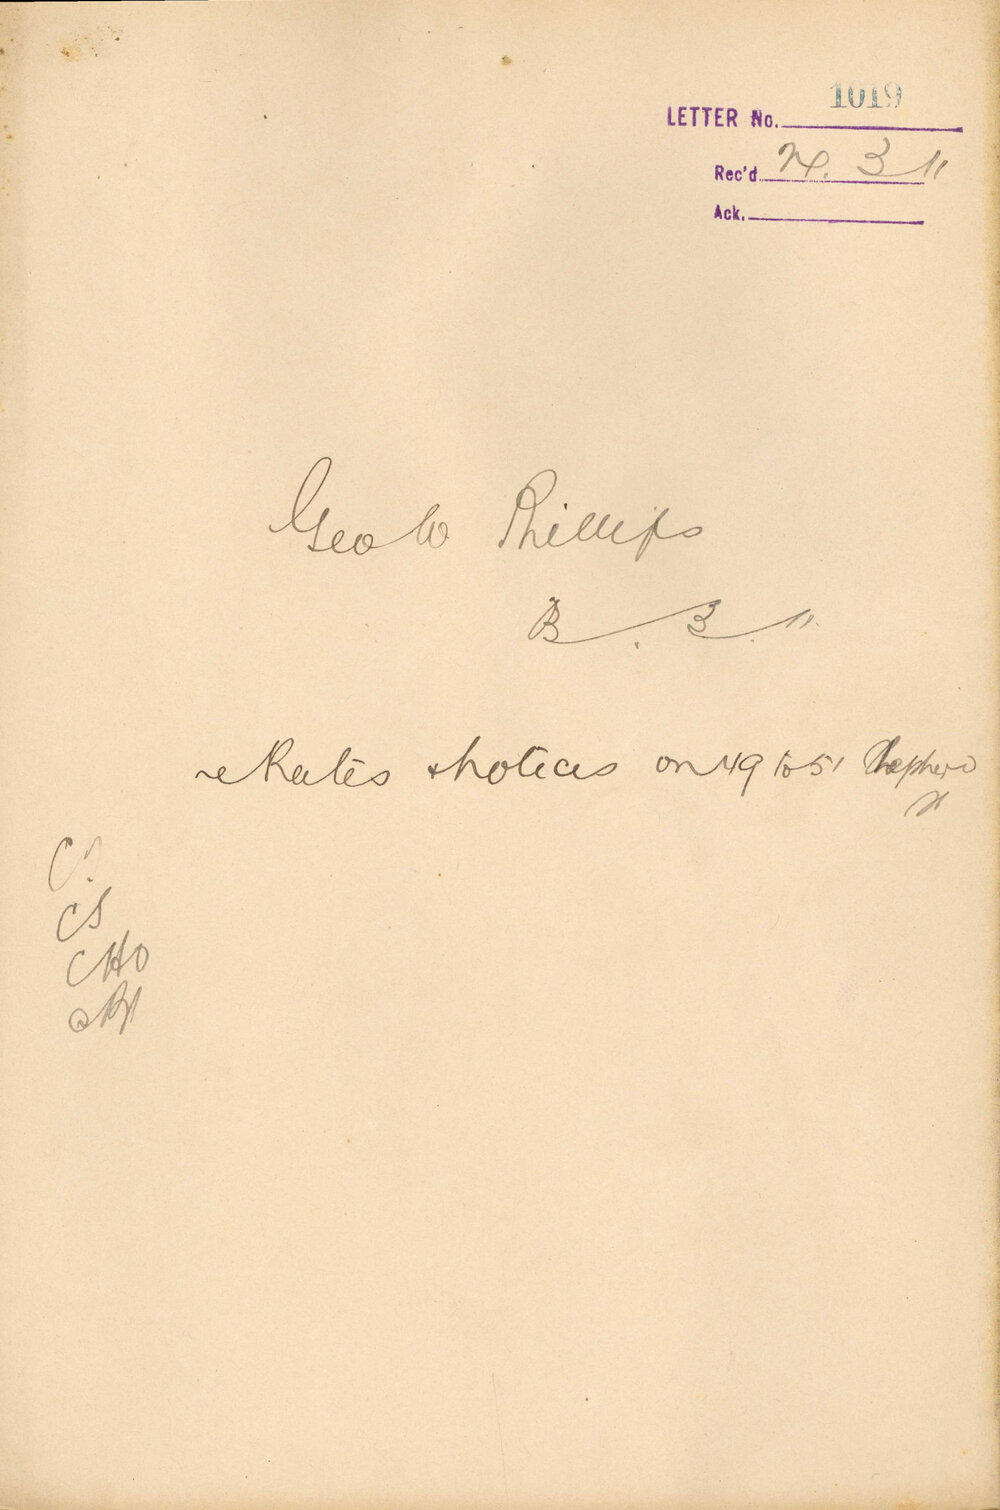 1019
LETTER No.
Rec'd 3 11
Ack.
Geo W Phillips
3. 11
re Rates & notices on 49 to 51 Shepherd
CS
CHO